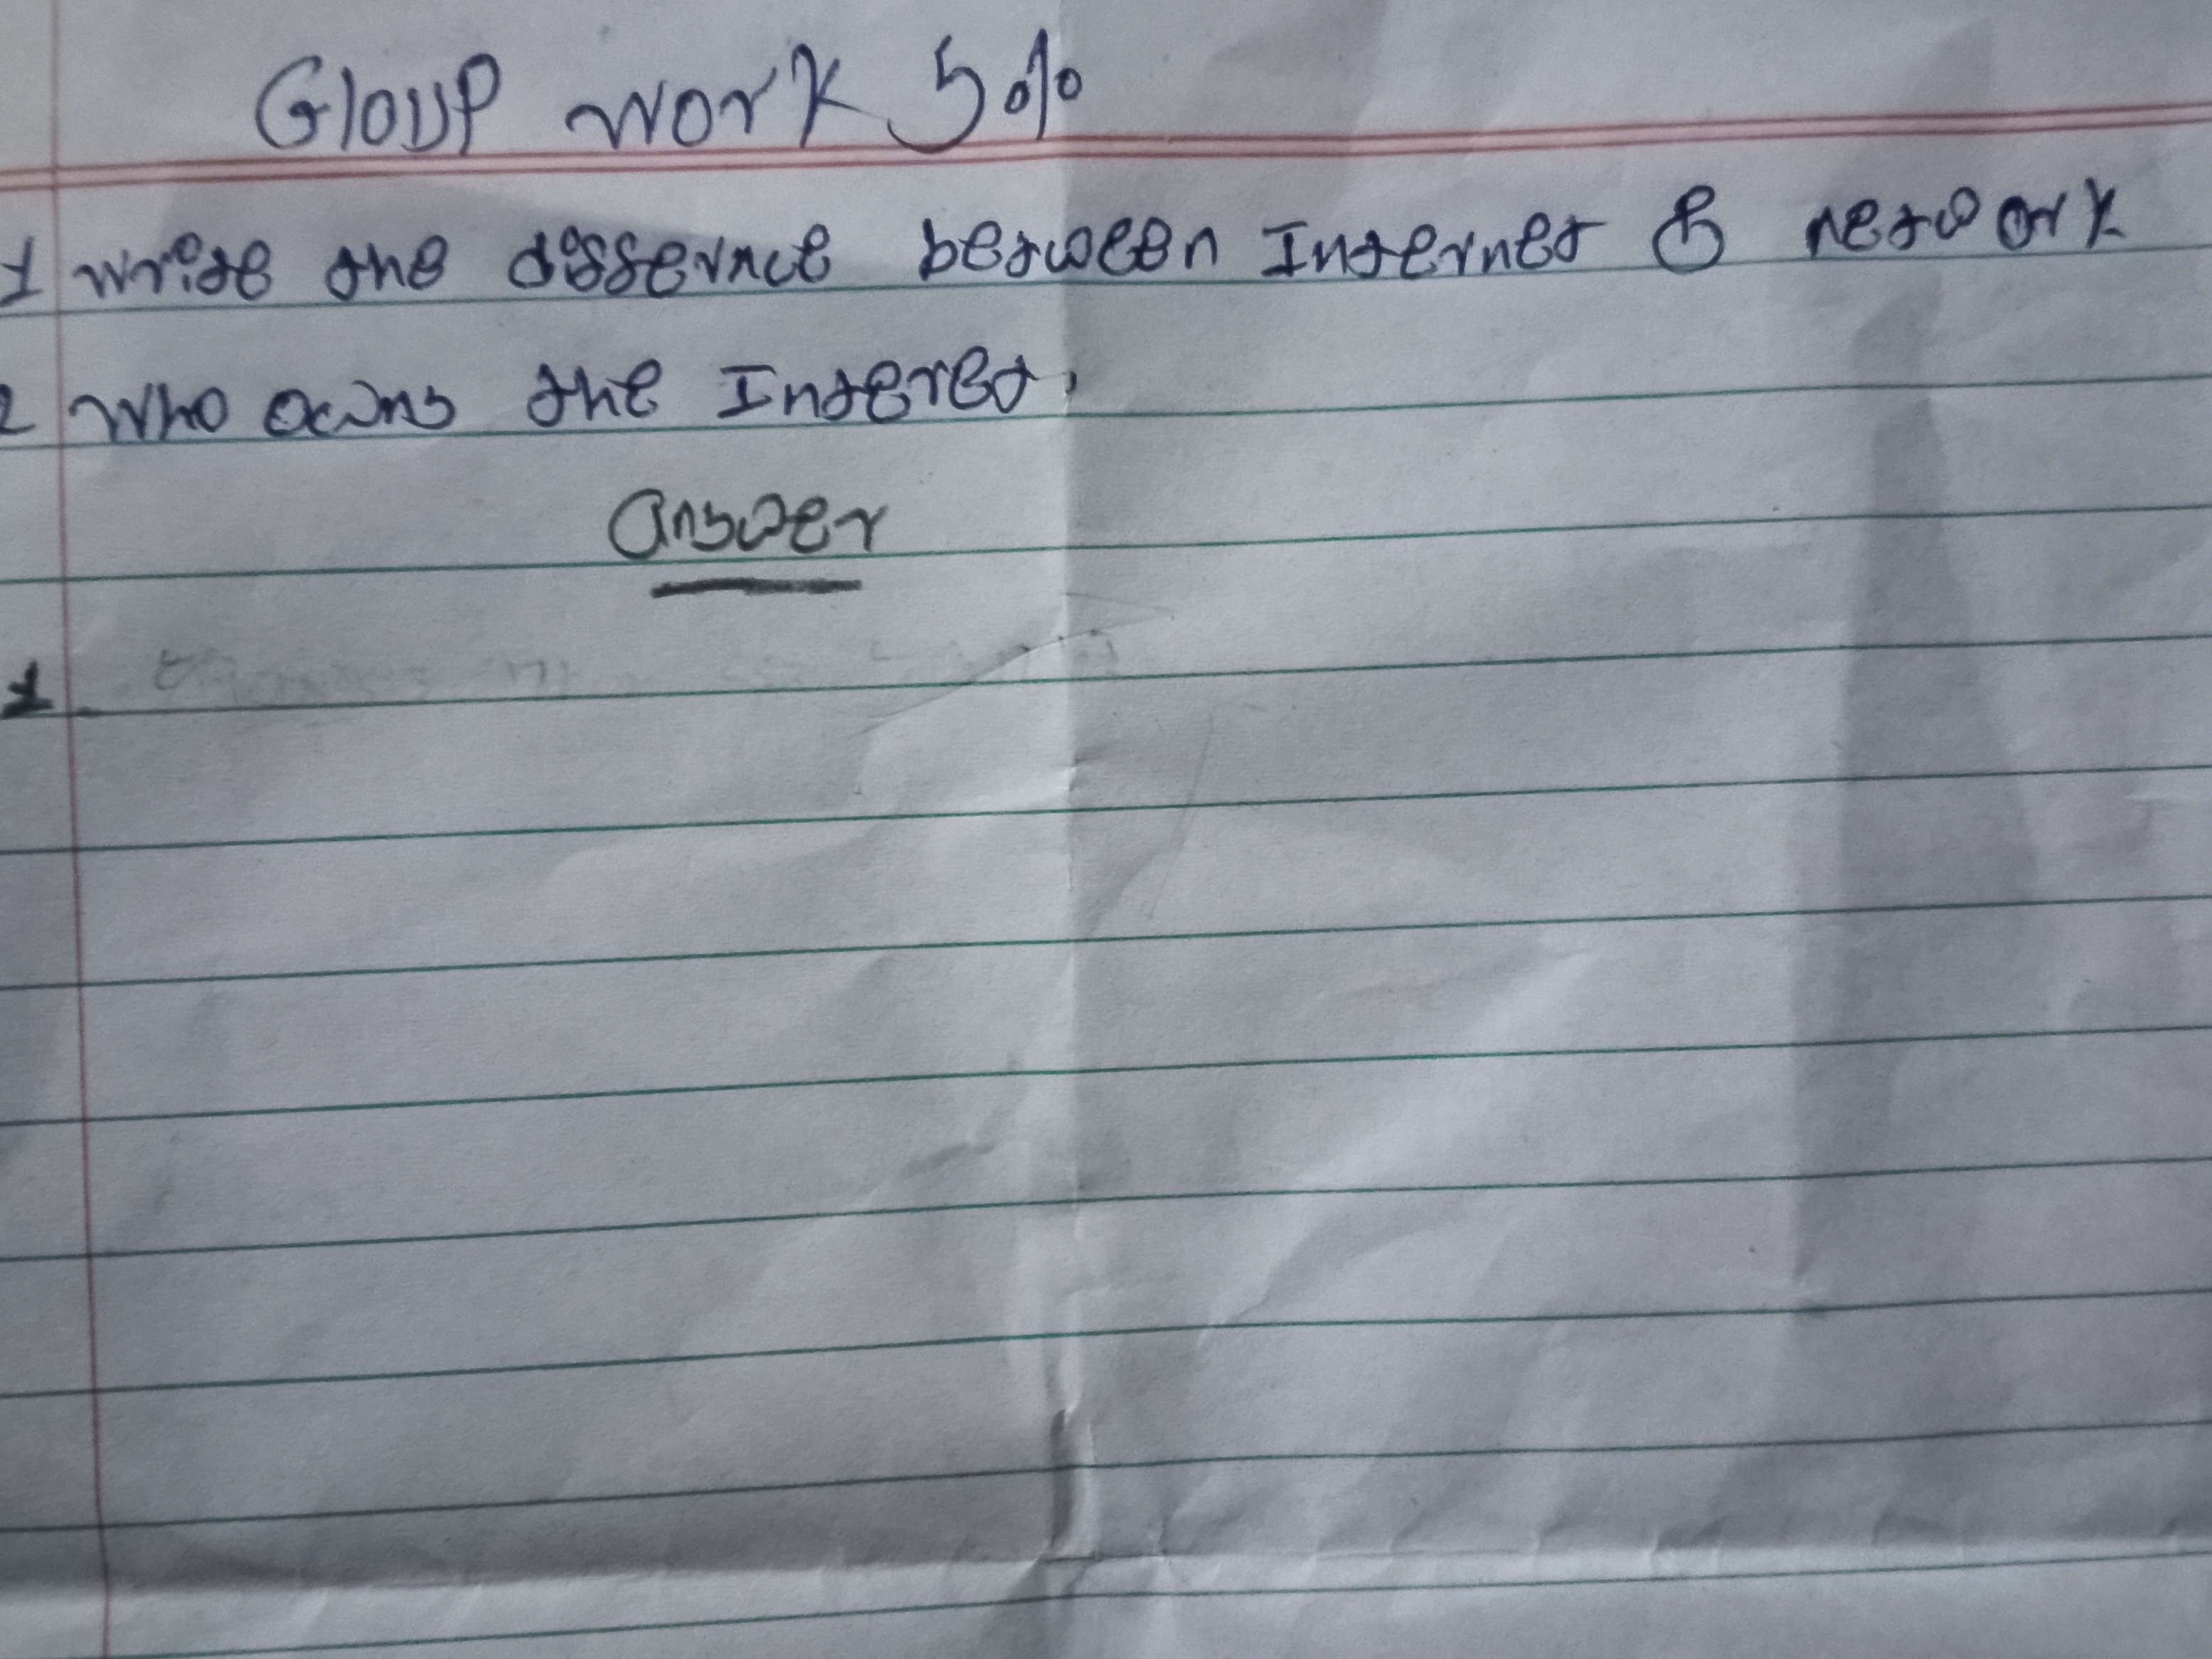 Group work 5%
1 write the differnce between Internet & network
2 Who owns the Interet.
answer
1